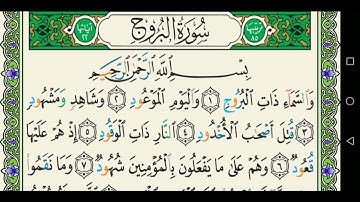 ترتيبها ٨٥
سُورَةُ الْبُرُوجِ
آياتها ٢٢
بِسْمِ اللَّهِ الرَّحْمَٰنِ الرَّحِيمِ
وَالسَّمَاءِ ذَاتِ الْبُرُوجِ ١ وَالْيَوْمِ الْمَوْعُودِ ٢ وَشَاهِدٍ وَمَشْهُودٍ
٣ قُتِلَ أَصْحَابُ الْأُخْدُودِ ٤ النَّارِ ذَاتِ الْوَقُودِ ٥ إِذْ هُمْ عَلَيْهَا
قُعُودٌ ٦ وَهُمْ عَلَىٰ مَا يَفْعَلُونَ بِالْمُؤْمِنِينَ شُهُودٌ ٧ وَمَا نَقَمُوا